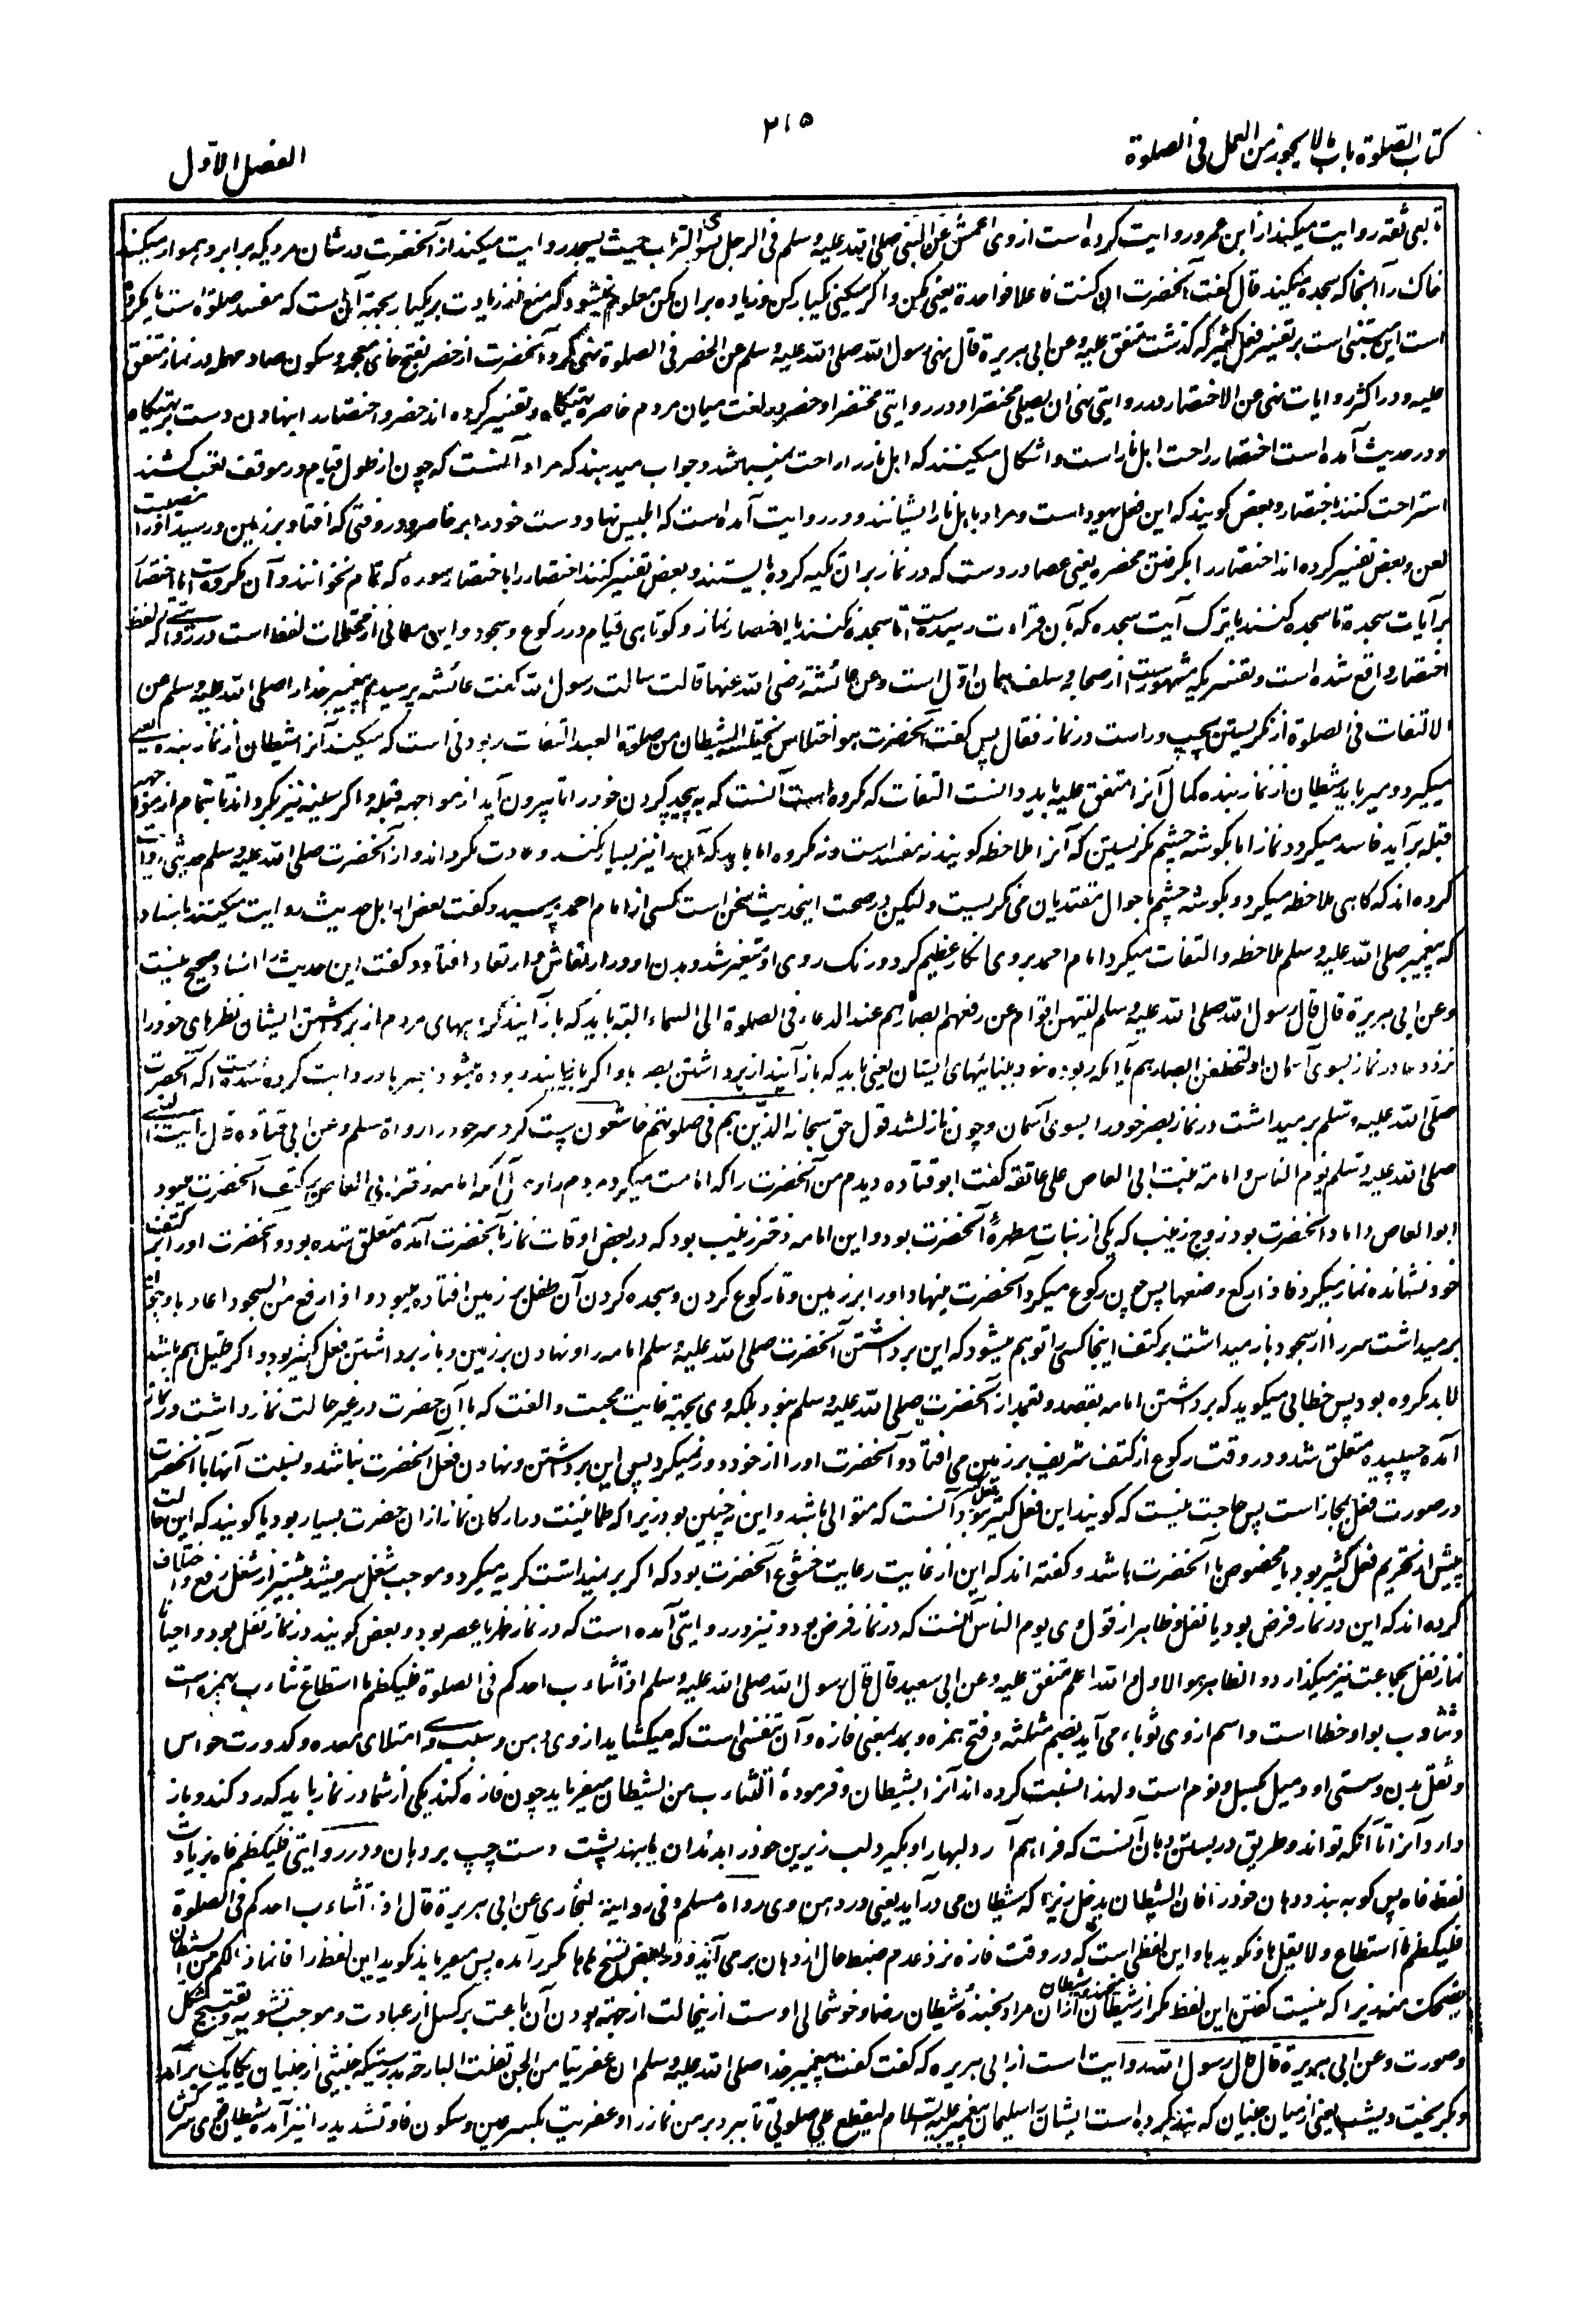 ۳۱۵
کتاب الصّلوة باب مالا یجوز من العمل فی الصلوة
الفصل الاوّل
تابعی ثقه روایت میکند از ابن عمر و روایت کرده است از وی اعمش عن النبی صلی الله علیه وسلم فی الرجل یسوی التراب حیث یسجد روایت میکند از آنحضرت در شان مردیکه برابر و هموار میکند
خاک را آنجا که سجده میکند قال گفت آنحضرت ان کنت فاعلا فواحدة یعنی مکن و اگر میکنی یکبار کن و زیاده بران مکن معلوم میشود که منع از زیادت بر یکبار بجهة آن ست که مفسد صلوة است یا مکروه
است این مبتنی است بر تفسیر فعل کثیر که گذشت متفق علیه وعن ابی هریرة قال نهی رسول الله صلی الله علیه وسلم عن الخصر فی الصلوة نهی کرد آنحضرت از خصر بفتح خای معجمه و سکون صاد مهمله در نماز متفق
علیه و در اکثر روایات نهی عن الاختصار و در روایتی نهی ان یصلی مختصرا و در روایتی متخصرا و خصر در لغت میان مردم خاصره تهیگاه و تفسیر کرده اند خصر و اختصار را بنهادن دست بر تهیگاه
و در حدیث آمده است اختصار راحت اهل نار است و اشکال میکنند که اهل نار را راحت نمیباشد و جواب میدهند که مراد آنست که چون از طول قیام در موقف تعب کشند
استراحت کنند باختصار و بعض گویند که این فعل یهود است و مراد باهل نار ایشانند و در روایت آمده است که ابلیس نهاد دست خود را بر خاصره در وقتی که افتاد بر زمین و رسید او را مصیبت
لعن و بعض تفسیر کرده اند اختصار را بگرفتن مخصره یعنی عصا در دست که در نماز بران تکیه کرده بایستند و بعض تفسیر کنند اختصار را باختصار سوره که تمام نخوانند و آن مکروه ست اما اختصار
بر آیات سجدة تا سجده کنند یا ترک آیت سجده که بآن قراءت رسیده ست تا سجده نکنند یا اختصار نماز و کوتاهی قیام و رکوع و سجود و این معانی از محتملات لفظ است در روایتی که لفظ
اختصار واقع شده است و تفسیریکه مشهور ست از صحابه و سلف همان اول است وعن عائشة رضی الله عنها قالت سالت رسول الله گفت عائشه پرسیدم پیغمبر خدا را صلی الله علیه وسلم عن
الالتفات فی الصلوة از نگریستن بچپ و راست در نماز فقال پس گفت آنحضرت هو اختلاس یختلسه الشیطان من صلوة العبد التفات ربودنی است که میکند آنرا شیطان از نماز بنده یعنی
میگیرد و میرباید شیطان از نماز بنده کمال آنرا متفق علیه باید دانست التفات که مکروه است آنست که به پیچد گردن خود را تا بیرون آید از مواجهه قبله و اگر سینه نیز بگرداند تا بتمام از مواجهه
قبله بر آید فاسد میگردد نماز اما بگوشه چشم نگریستن که آنرا ملاحظه گویند نه مفسد است و نه مکروه اما باید که آن را نیز بسیار نکند و عادت نگرداند و از آنحضرت صلی الله علیه وسلم حدیثی روایت
کرده اند که گاهی ملاحظه میکرد و بگوشه چشم باحوال مقتدیان می نگریست ولیکن در صحت اینحدیث سخن است کسی از امام احمد پرسید و گفت بعض اهل حدیث روایت میکنند باسناد
که پیغمبر صلی الله علیه وسلم ملاحظه و التفات میکرد امام احمد بر وی انکار عظیم کرد و رنگ روی او متغیر شد و بدن او در ارتعاش و ارتعاد افتاد و گفت این حدیث را اسناد صحیح نیست
وعن ابی هریرة قال قال رسول الله صلی الله علیه وسلم لینتهین اقوام عن رفعهم ابصارهم عند الدعاء فی الصلوة الی السماء البته باید که باز آیند گروههای مردم از برداشتن ایشان نظرهای خود را
نزد دعا در نماز بسوی آسمان او لتخطفن ابصارهم یا آنکه ربوده شود بینائیهای ایشان یعنی باید که باز آیند از برداشتن بصرها و اگر باز نیایند ربوده میشود بصرها و روایت کرده شده است که آنحضرت
صلّی الله علیه وسلم بر میداشت در نماز بصر خود را بسوی آسمان و چون نازل شد قول حق سبحانه الذین هم فی صلوتهم خاشعون پست کرد سر خود را رواه مسلم وعن ابی قتاده قال رایت النبی
صلی الله علیه وسلم یوم الناس و امامة بنت ابی العاص علی عاتقه گفت ابو قتاده دیدم من آنحضرت را که امامت میکرد مردم را و حال آنکه امامه دختر ابی العاص بر کتف آنحضرت میبود
ابو العاص داماد آنحضرت بود زوج زینب که یکی از بنات مطهرهٔ آنحضرت بود و این امامه دختر زینب بود که در بعض اوقات نماز بآنحضرت آمده متعلق شده بود و آنحضرت او را بر کتف
خود نشانده نماز میکرد فاذا رکع وضعها پس چون رکوع میکرد آنحضرت مینهاد او را بر زمین و تا رکوع کردن و سجده کردن آن طفل بر زمین افتاده میبود و اذا رفع من السجود اعادها و چون
برمیداشت سر را از سجود باز میداشت بر کتف اینجا کسی را توهم میشود که این برداشتن آنحضرت صلی الله علیه وسلم امامه را و نهادن بر زمین و باز برداشتن فعل کثیر بود و اگر قلیل هم باشد
لابد مکروه بود پس خطابی میگوید که برداشتن امامه بقصد و تعمد از آنحضرت صلی الله علیه وسلم نبود بلکه وی بجهة غایت محبت و الفت که با آن حضرت در غیر حالت نماز داشت در نماز
آمده چسپیده متعلق شد و در وقت رکوع از کتف شریف بر زمین می افتاد و آنحضرت او را از خود دور نمیکرد پس این برداشتن و نهادن فعل آنحضرت نباشد و نسبت آنها با آنحضرت
در صورت فعل مجاز است پس حاجت نیست که گویند این فعل کثیر نبود آنست که متوالی باشد و این نه چنین بود زیرا که طمانینت در ارکان نماز از ان حضرت بسیار بود یا گویند که این حالت
پیش از تحریم فعل کثیر بود یا مخصوص با آنحضرت باشد و گفته اند که این از غایت رعایت خشوع آنحضرت بود که اگر بر نمیداشت گریه میکرد و موجب شغل سر میشد بیشتر از شغل رفع و اختلاف
کرده اند که این در نماز فرض بود یا نفل و ظاهر از قول وی یوم الناس آنست که در نماز فرض بود و نیز در روایتی آمده است که در نماز ظهر یا عصر بود و بعض گویند در نماز نفل بود و احیانا
نماز نفل بجماعت نیز میگذارد و الظاهر هو الاول والله اعلم متفق علیه وعن ابی سعید قال قال رسول الله صلی الله علیه وسلم اذا تثاءب احدکم فی الصلوة فلیکظم ما استطاع تثاءب بهمزه است
و تثاوب بواو خطا است و اسم از وی ثوباء می آید بضم مثلثه و فتح همزه و بمد بمعنی فازه و آن تنفسی است که میکشاید از وی دهن و سبب وی امتلای معده و کدورت حواس
و ثقل بدن و سستی او و میل بکسل و نوم است و لهذا نسبت کرده اند آنرا بشیطان و فرموده التثاؤب من الشیطان میفرماید چون فازه کند یکی از شما در نماز باید که رد کند و باز
دارد آنرا تا آنکه تواند و طریق در بستن دهان آنست که فراهم آرد لبها را و بگیرد لب زیرین خود را بدندان یا بنهد پشت دست چپ بر دهان و در روایتی فلیکظم فاه بزیادت
لفظ فاه پس گو به بندد دهان خود را فان الشیطان یدخل زیرا که شیطان می درآید یعنی در دهن وی رواه مسلم و فی روایة البخاری عن ابی هریرة قال اذا تثاءب احدکم فی الصلوة
فلیکظم ما استطاع و لا یقل ها و نگوید ها و این لفظی است که در وقت فازه نزد عدم ضبط حال از دهان بر می آید و در بعض نسخ ها ها مکرر آمده پس میفرماید نگوید این لفظ را فانما ذلکم من الشیطان
یضحک منه زیرا که نیست گفتن این لفظ مگر از شیطان میخندد شیطان ازان مراد بخندهٔ شیطان رضا و خوشحالی اوست ازینحالت از جهة بودن آن باعث بر کسل از عبادت و موجب تشویه و تقبیح شکل
و صورت وعن ابی هریرة قال قال رسول الله روایت است از ابی هریره که گفت گفت پیغمبر خدا صلی الله علیه وسلم ان عفریتا من الجن تفلت البارحة بدرستیکه خبیثی از جنیان یکایک بر آمد
و بگریخت دیشب یعنی از میان جنیان که بند کرده است ایشان را سلیمان پیغمبر علیه السلام لیقطع علی صلوتی تا ببرد بر من نماز را و عفریت بکسر عین و سکون فا و تشدید را نیز آمده شیطان قوی سرکش